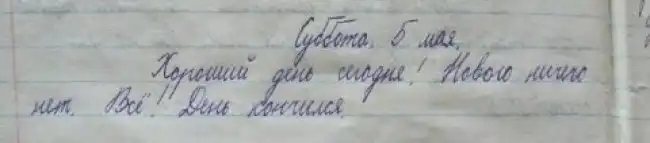 Суббота. 5 мая.
Хороший день сегодня! Нового ничего
нет. Всё! День кончился.